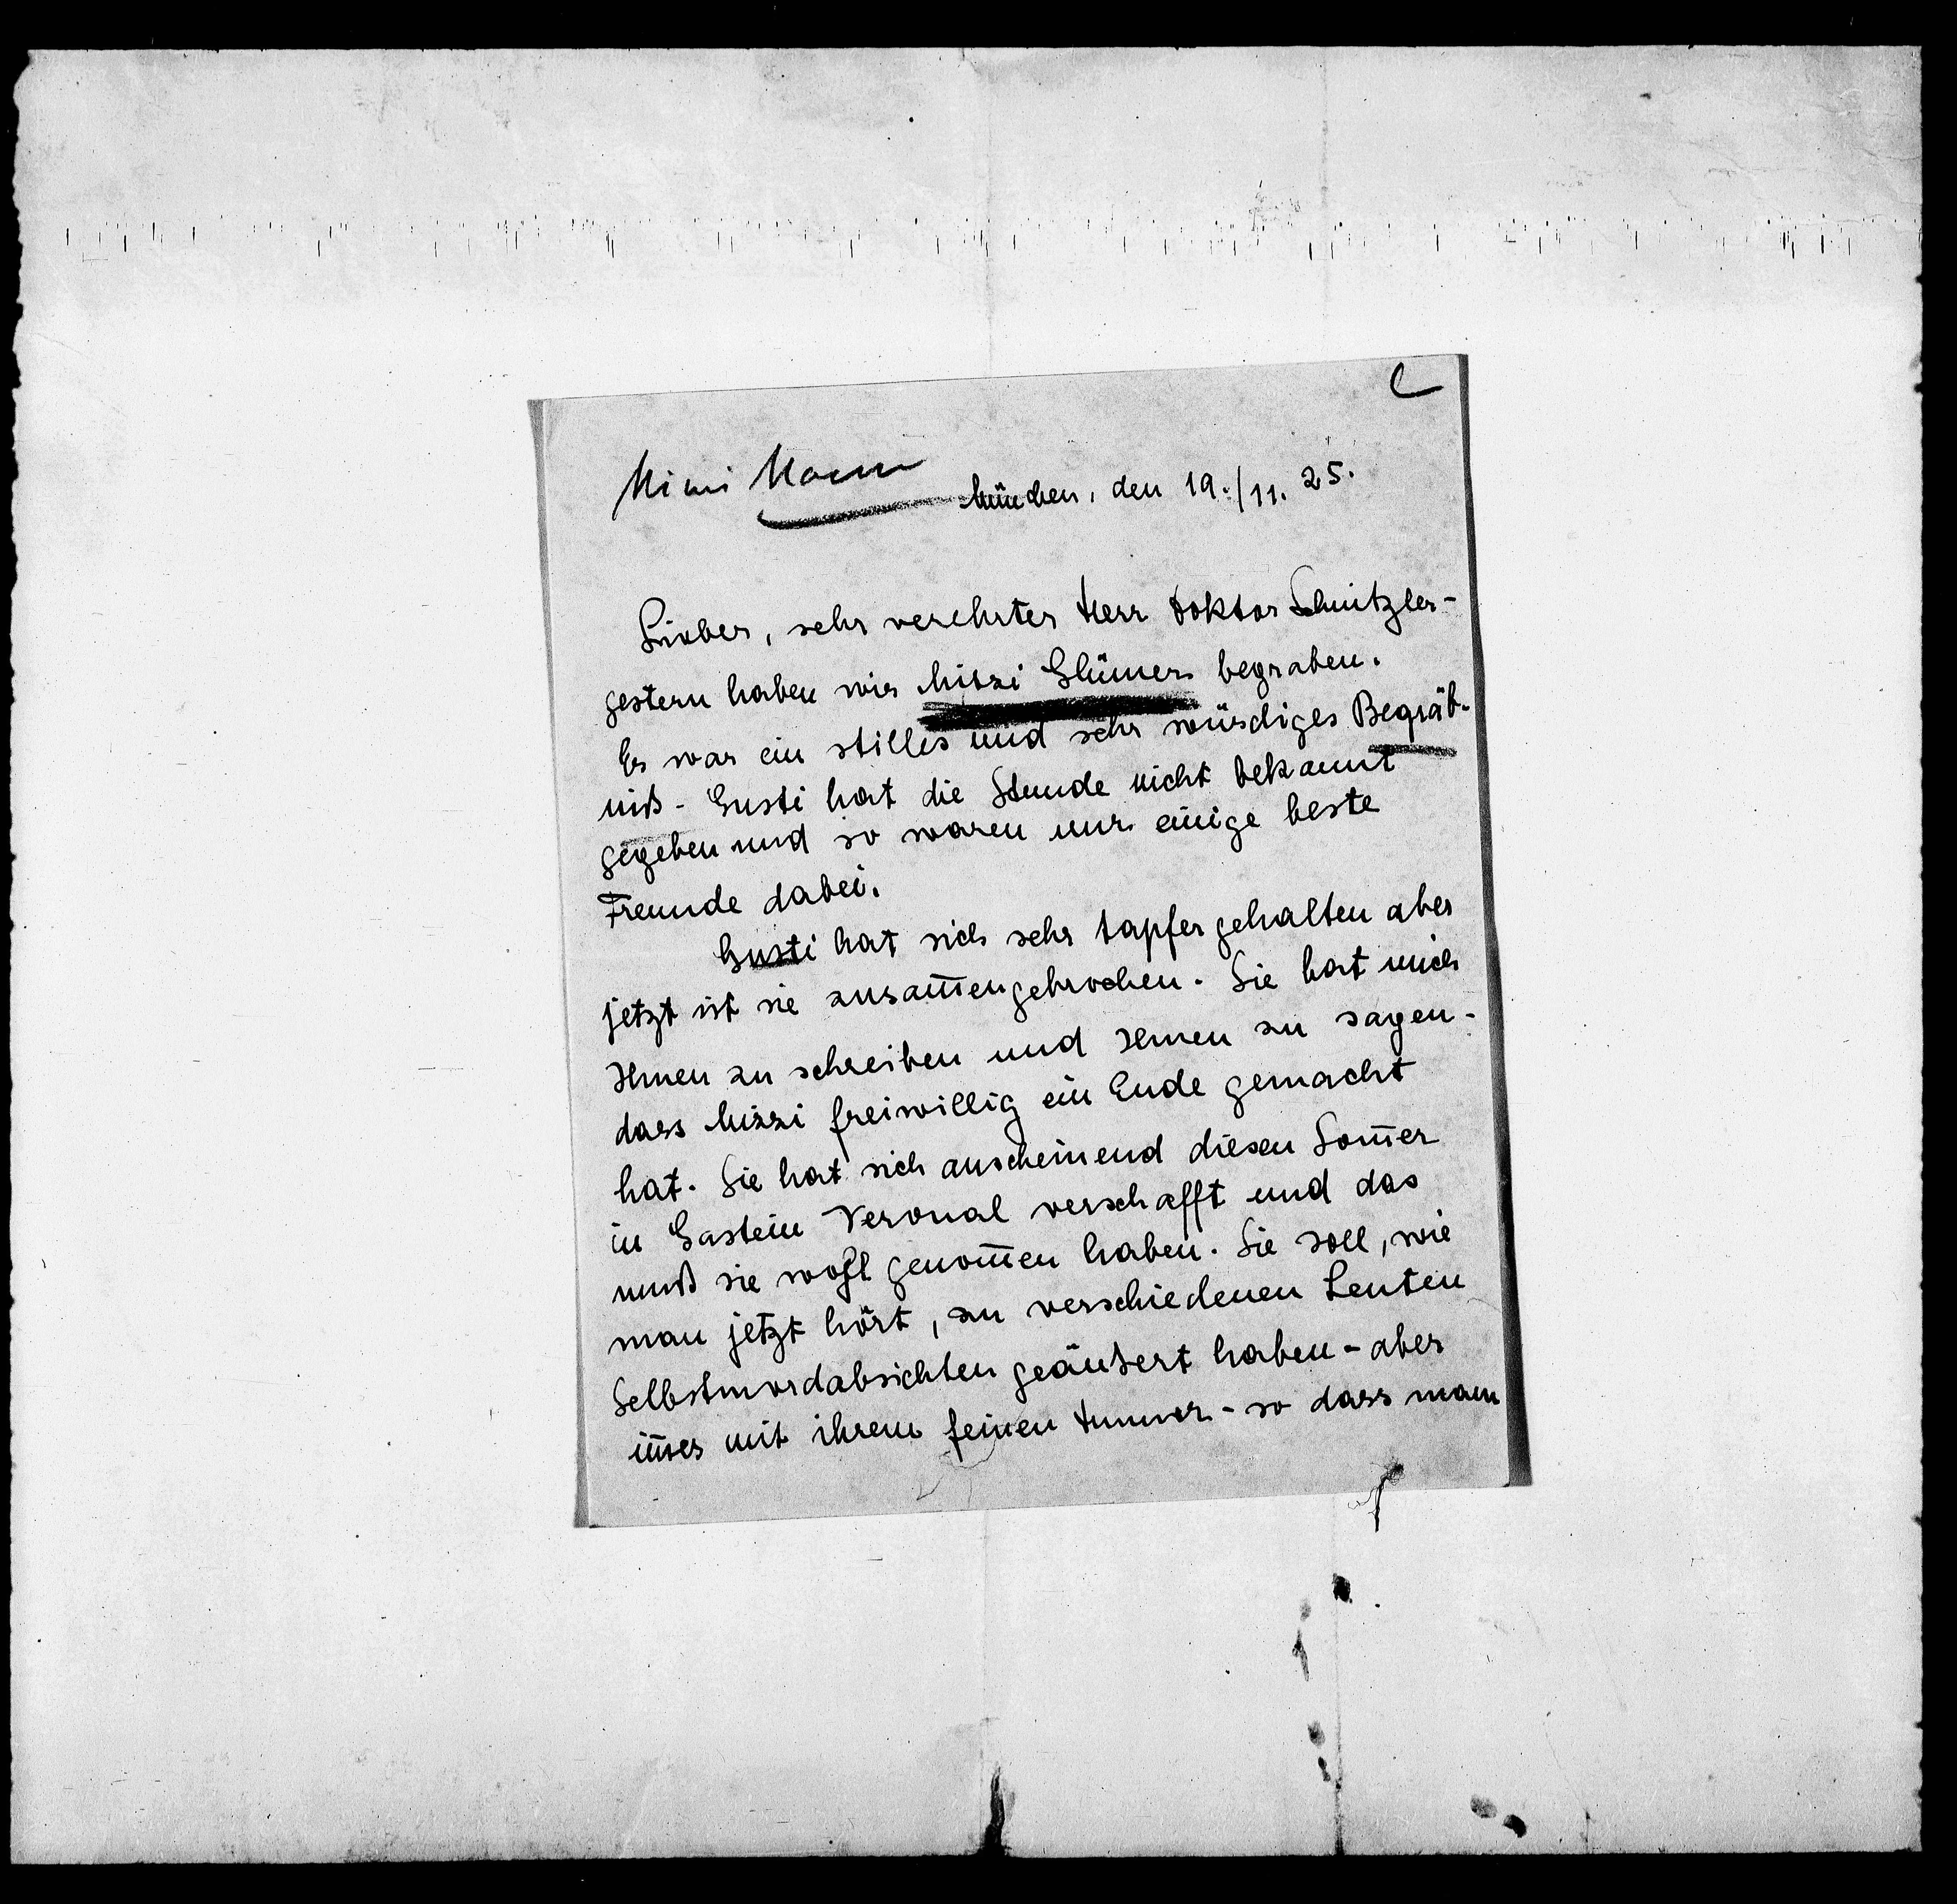 Mimi Mann
München, den 19./11. 25.
Lieber, sehr verehrter Herr Doktor Schnitzler-
gestern haben wir Mizzi Glümer begraben.
Es war ein stilles und sehr würdiges Begräb-
niß - Gusti hat die Stunde nicht bekannt
gegeben und so waren nur einige beste
Freunde dabei.
Gusti hat sich sehr tapfer gehalten aber
jetzt ist sie zusam̅engebrochen. Sie bat mich
Ihnen zu schreiben und Ihnen zu sagen-
dass Mizzi freiwillig ein Ende gemacht
hat. Sie hat sich anscheinend diesen Som̅er
in Gastein Veronal verschafft und das
muß sie wohl genom̅en haben. Sie soll, wie
man jetzt hört, zu verschiedenen Leuten
Selbstmordabsichten geäußert haben - aber
im̅er mit ihrem feinen Humor - so dass man